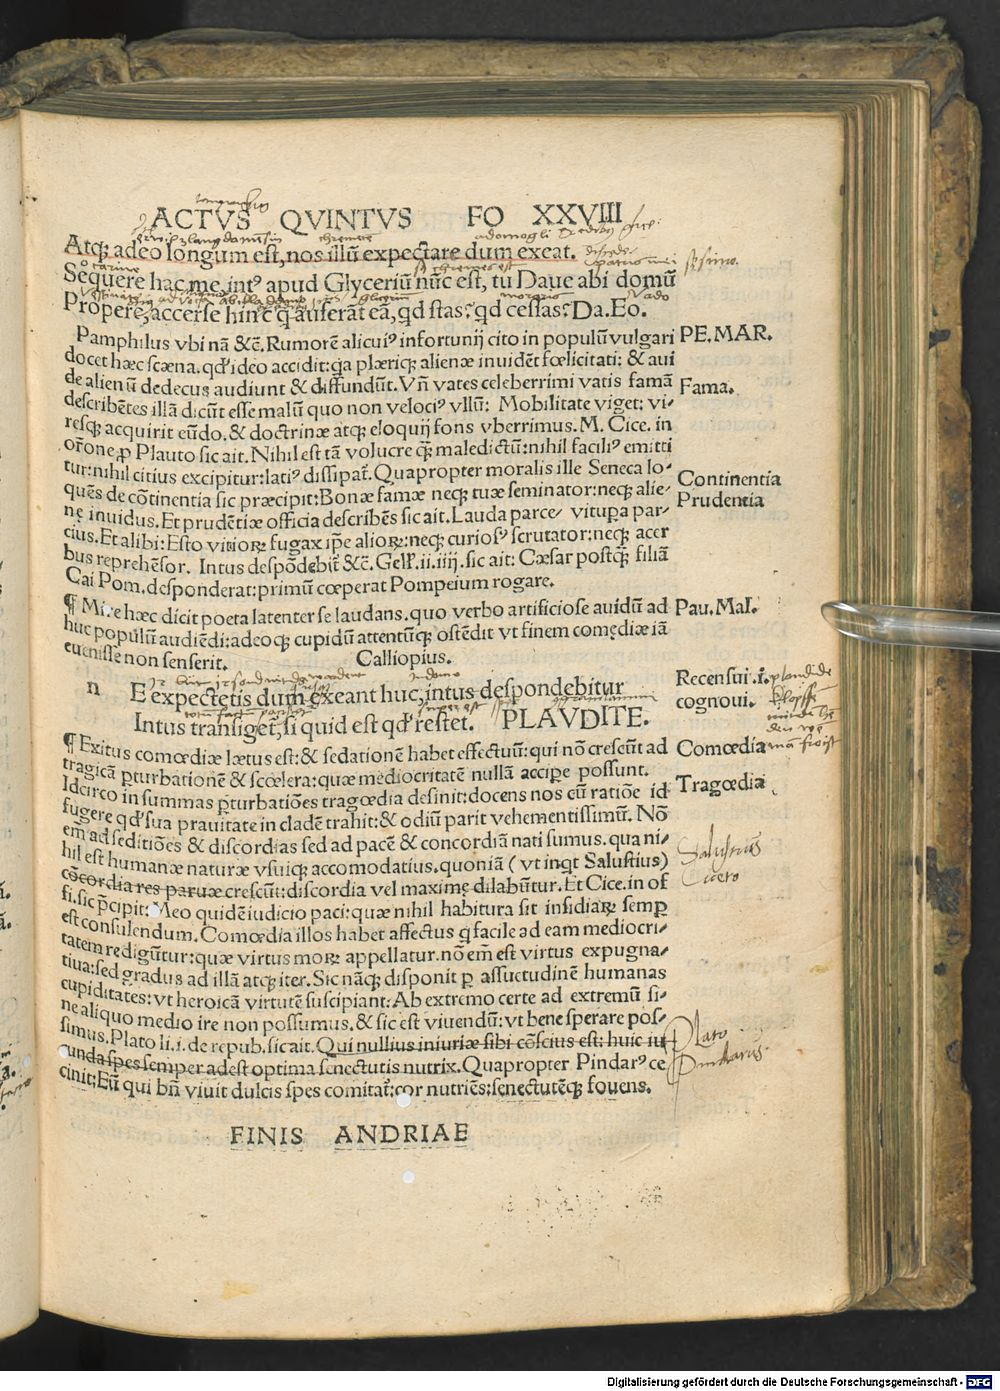 ACTVS QVINTVS FO XXVIII
Atq; adeo longum est, nos illũ expectare dum exeat.
Sequere hac me, intꝰ apud Glyceriũ nũc est, tu Daue abi domũ
Propere, accerse hinc q̃ auferãt eã, qd stas? qd cessas? Da. Eo.
Pamphilus vbi nã &c̃. Rumorẽ alicuiꝰ infortunij cito in populũ vulgari PE. MAR.
docet hæc scæna. qđ ideo accidit: q̃a plæriq; alienæ inuidẽt fœlicitati: & aui
de alienũ dedecus audiunt & diffundũt. Vñ vates celeberrimi vatis famã Fama.
describẽtes illã dicũt esse malũ quo non velociꝰ vllũ: Mobilitate viget: vi-
resq; acquirit eũdo, & doctrinæ atq; eloquij fons vberrimus. M. Cice. in
or̃one ꝓ Plauto sic ait. Nihil est tã volucre q̃; maledictũ: nihil faciliꝰ emitti
tur: nihil citius excipitur: latiꝰ dissipat̃. Quapropter moralis ille Seneca lo-
quẽs de cõtinentia sic præcipit: Bonæ famæ neq; tuæ seminator: neq; alie- Continentia
nę inuidus. Et prudẽtiæ officia describẽs sic ait. Lauda parce vitupa par- Prudentia
cius. Et alibi: Esto vitioꝝ fugax ip̃e alioꝝ: neq; curiosꝰ scrutator: neq; acer
bus reprehẽsor. Intus despõdebit̃ &c̃. Gell̃. ii. iiij. sic ait: Cæsar postq̃; filiã
Cai Pom. desponderat: primũ cœperat Pompeium rogare.
¶ Mire hæc dicit poeta latenter se laudans. quo verbo artificiose auidũ ad Pau. Mal.
huc populũ audiẽdi: adeoq; cupidũ attentũq; ostẽdit vt finem comediæ iã
euenisse non senserit. Calliopius.
n E expectetis dum exeant huc, intus despondebitur Recensui .i.
Intus transiget̃, si quid est qđ restet. PLAVDITE. cognoui.
¶ Exitus comœdiæ lætus est: & sedationẽ habet effectuũ: qui nõ crescũt ad Comœdia
tragicã ꝑturbationẽ & scœlera: quæ mediocritatẽ nullã accipe possunt.
Idcirco in summas ꝑturbatiões tragœdia desinit: docens nos cũ ratiõe id Tragœdia
fugere qđ sua prauitate in cladẽ trahit: & odiũ parit vehementissimũ. Nõ
em̃ ad seditiões & discordias sed ad pacẽ & concordiã nati sumus. qua ni-
hil est humanæ naturæ vsuiq; accomodatius. quoniã (vt inqt Salustius) Salustius
cõcordia res paruæ crescũt: discordia vel maximę dilabũtur. Et Cice. in of Cicero
fi. sic p̃cipit: Meo quidẽ iudicio paci: quæ nihil habitura sit insidiaꝝ semꝑ
est consulendum. Comœdia illos habet affectus q̃ facile ad eam mediocri-
tatem redigũtur: quæ virtus moꝝ appellatur. nõ em̃ est virtus expugna-
tiua: sed gradus ad illã atq; iter. Sic nãq; disponit ꝑ assuetudinẽ humanas
cupiditates: vt heroicã virtutẽ suscipiant: Ab extremo certe ad extremũ si-
ne aliquo medio ire non possumus. & sic est viuendũ: vt bene sperare pos-
simus. Plato li. i. de repub. sic ait. Qui nullius iniuriæ sibi cõscius est: huic iu Plato
cunda spes semper adest optima senectutis nutrix. Quapropter Pindarꝰ ce Pindarus
cinit: Eũ qui bñ viuit dulcis spes comitat̃: cor nutriẽs: senectutẽq; fouens.
FINIS ANDRIAE
Digitalisierung gefördert durch die Deutsche Forschungsgemeinschaft - DFG